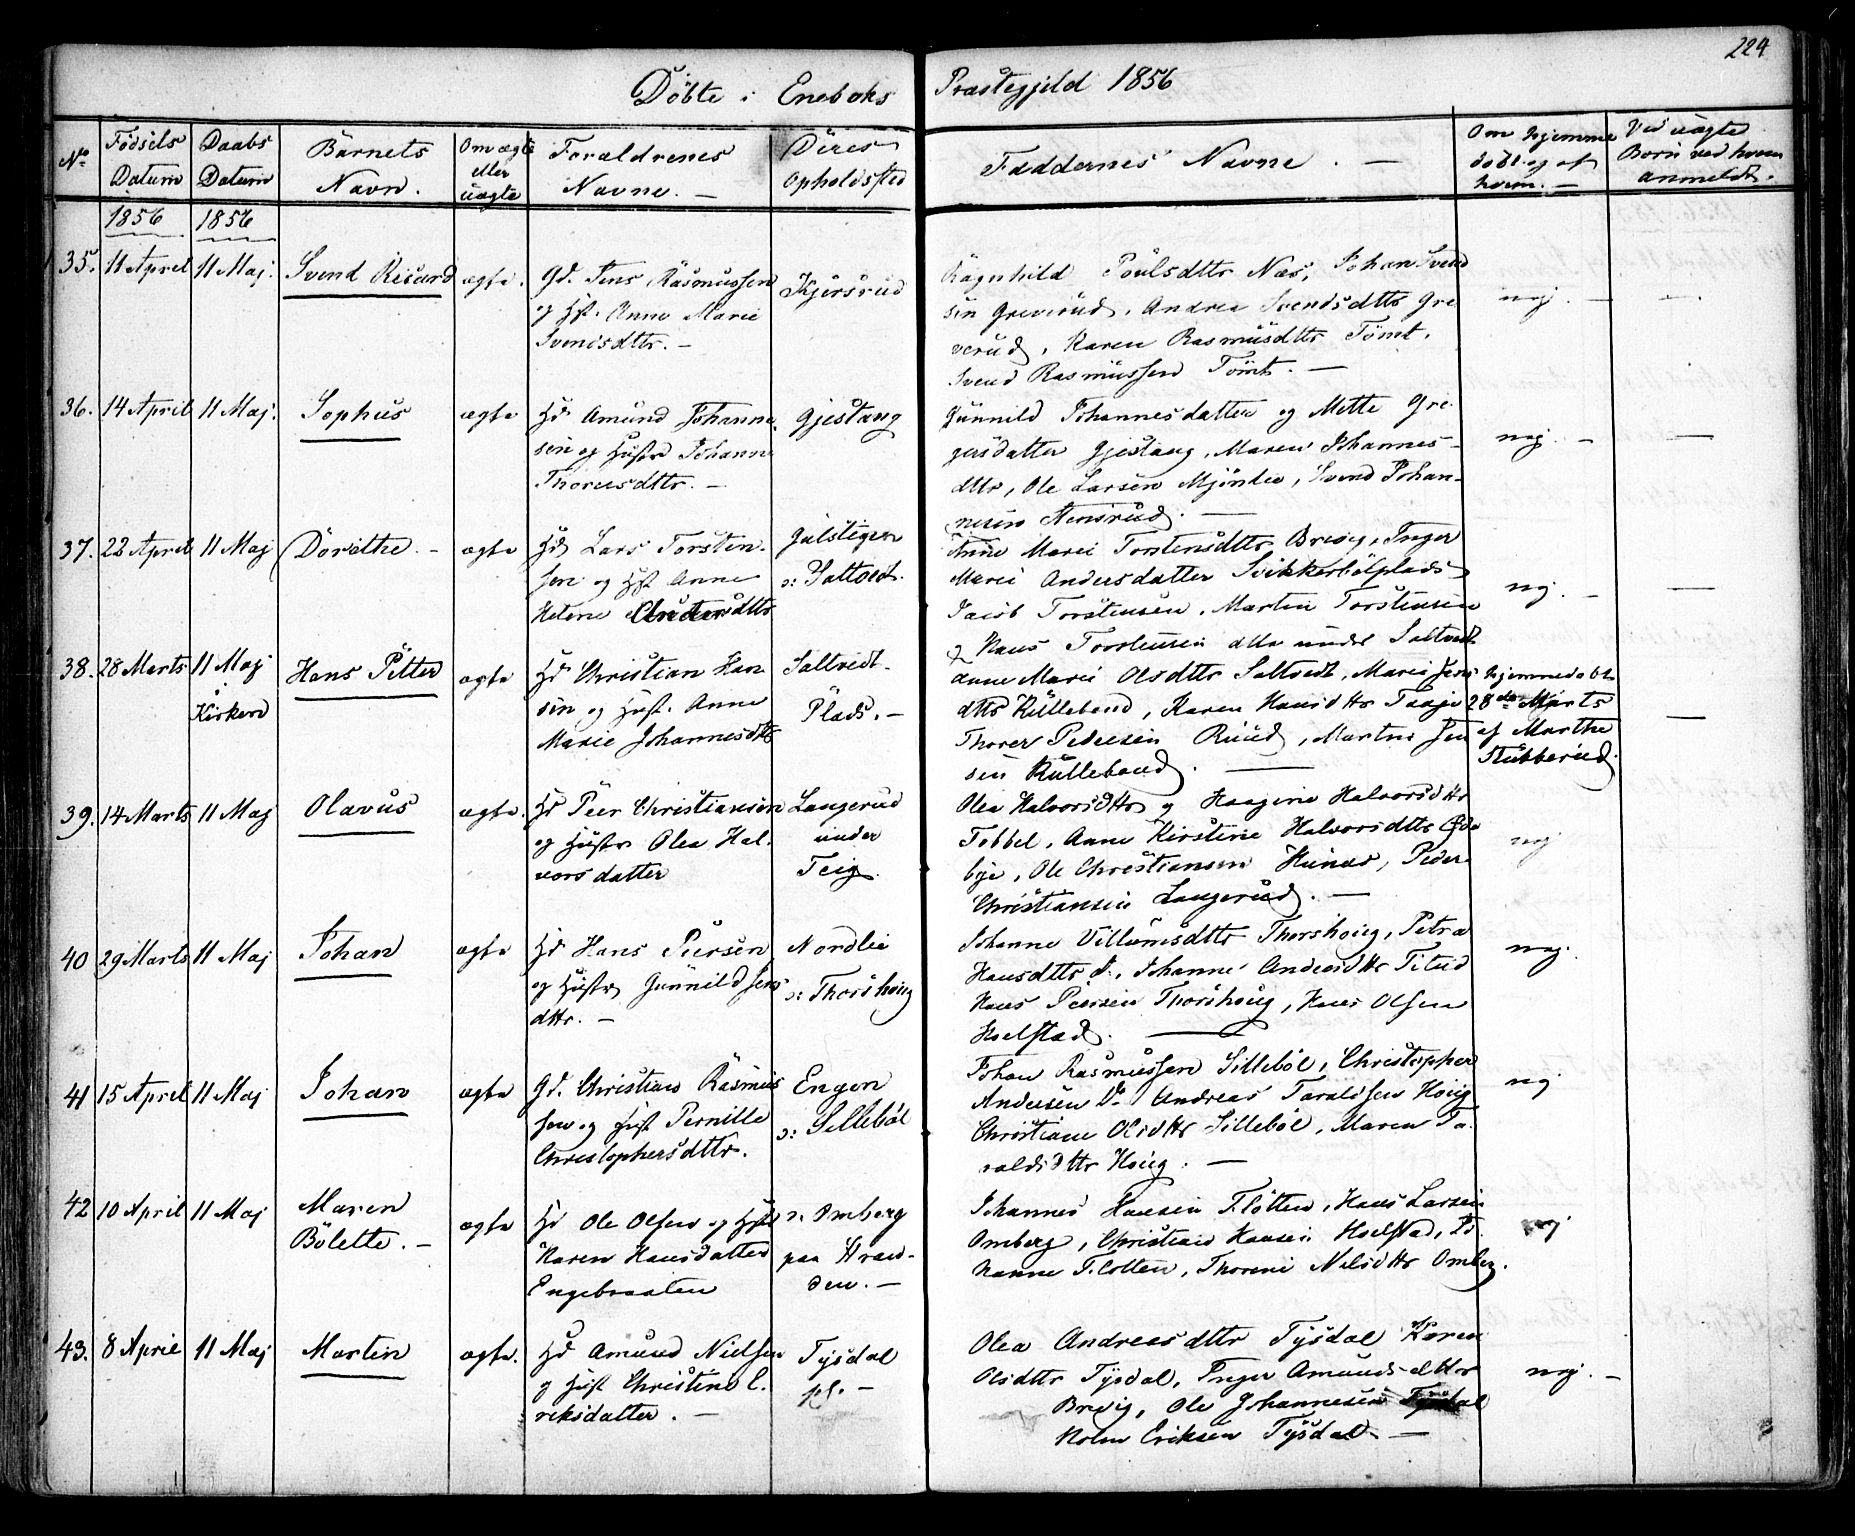 224
Döbte i Eneboks Præstegjeld 1856
No Födsels Datum
Daabs Datum
Barnets Navn.
Om ægte eller uægte
Forældrenes Navne. —
Deres Opholdsted
Faddernes Navne. —
Om hjemmedöbt og af hvem. —
Ved uægte Börn ved hvem anmeldt.
1856 1856
35. 11 April 11 Maj. Svend Ricard ægte. Gd. Jens Rasmussen Kjersrud
og Hst. Anne Marie
Svendsdttr. —
Ragnhild Poulsdttr Næs, Johan Svend
sen Greverud, Andrea Svendsdttr Gre
verud, Karen Rasmusdttr Tömt,
Svend Rasmussen Tömt. —
nej. — —
36. 14 April 11 Maj. Sophus ægte Hd Amund Johanne Gjestang
sen og Hustr Johanne
Thoresdttr. —
Gunnild Johannesdatter og Mette Gre
gersdatter Gjestang, Maren Johannes-
dttr, Ole Larsen Mjönlie, Svend Johan-
nesen
nej. — —
37. 22 April 11 Maj Dorithe. — ægte Hd Lars Torsten-
sen og Hst Anne
Helene Andersdttr
Gulstigen
u: Saltvedt.
Anne Marie Torstensdttr Brevig, Inger
Marie Andersdatter Svikkerbölplads
Jacob Torstensen, Martin Torstensen
& Hans Torstensen alle under Saltvedt
nej. — —
38. 28 Marts 11 Maj i Kirken Hans Petter ægte Hd Christian Han
sen og Hust. Anne
Marie Johannesdttr
Saltvedt-
Plads. —
Anne Marie Olsdttr Saltvedt, Maren Jens
dttr Kulleband, Karen Hansdttr Traaje
Thorer Pedersen Ruud, Martin Jen
sen Kulleband. —
hjemmedöbt
28de Marts
af Marthe
Stubberud.
—
39. 14 Marts 11 Maj Olavus ægte. Hd Peer Christiansen
og Hustr Olea Hal-
vorsdatter
Langerud
under
Teig.
Olea Halvorsdttr og Halvorsdttr
Tobbel, Anne Kirstine Halvorsdttr
bye, Ole Christiansen Peder
Christiansen Langerud. —
nej
40 29 Marts 11 Maj Johan ægte Hd Hans Peersen
og Hustr Gunnild Jens
dttr. —
Nordlie
u: Thorshoug
Johanne Villumsdttr Thorshoug, Petra
Hansdttr d., Johanne Andersdttr
Hans Peersen Thorshoug, Hans Olsen
Hoelstad. —
nej.
41 15 April 11 Maj Johan ægte Gd. Christian Rasmus
sen og Hust Pernille
Christophersdttr.
Engen
u: Sillebøl
Johan Rasmussen Silleböl, Christopher
Andersen Do Andreas Taraldsen Houg
Christiane Olsdttr Silleböl, Maren Ta-
raldsdttr Houg. —
nej
42 10 April 11 Maj Maren
Bölette. —
ægte Hd Ole Olsen og Hustr
Karen Hansdatter
Engebraaten
u: Omberg
paa Stran-
den. —
Johannes Hansen Flötten, Hans Larsen
Omberg, Christian Hansen Hoelstad, Jo
hanne Flotten, Thorine Nelsdttr Omberg.
nej
43. 8 April 11 Maj Martin ægte. Hd Amund Nielsen
og Hust Christine E-
riksdatter. —
Tysdal
pl. —
Olea Andreasdttr Tysdal Karen
Olsdttr Tysdal, Inger Amundsdttr
Brevig, Ole Johannesen Tysdal
Holm Eriksen Tysdal —
nej. —